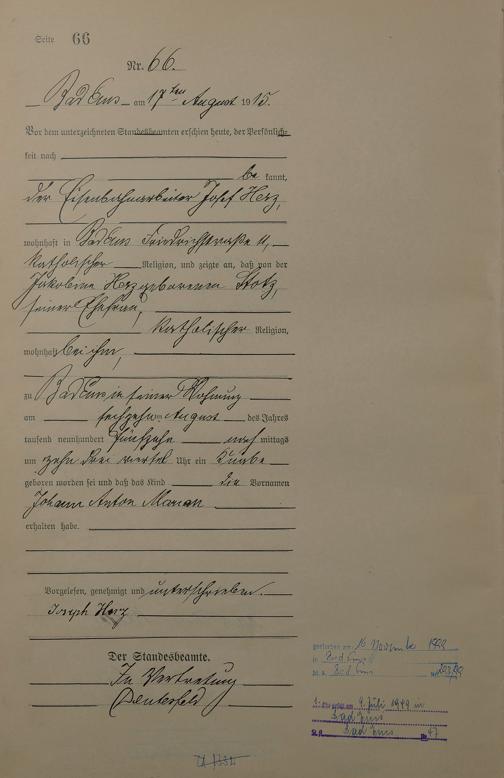 Seite 66
Nr. 66.
Bad Ems am 17ten August 1915.
Vor dem unterzeichneten Standesbeamten erschien heute, der Persönlich-
keit nach
be kannt,
der Eisenbahnarbeiter Josef Herz,
wohnhaft in Bad Ems Friedrichstraße 11,
katholischer Religion, und zeigte an, daß von der
Jakobine Herz geborenen Stotz,
seiner Ehefrau,
katholischer Religion,
wohnhaft bei ihm,
zu Bad Ems in seiner Wohnung
am sechzehnten August des Jahres
tausend neunhundert fünfzehn nachmittags
um zehn drei viertel Uhr ein Knabe
geboren worden sei und daß das Kind die Vornamen
Johann Anton
erhalten habe.
Vorgelesen, genehmigt und unterschrieben.
Joseph Herz
Der Standesbeamte.
In Vertretung
gestorben am 16 November 1999
in Bad Ems
St. A. Bad Ems
9. Juli 1949 in
Bad Ems
St. A. Bad Ems Nr. 47